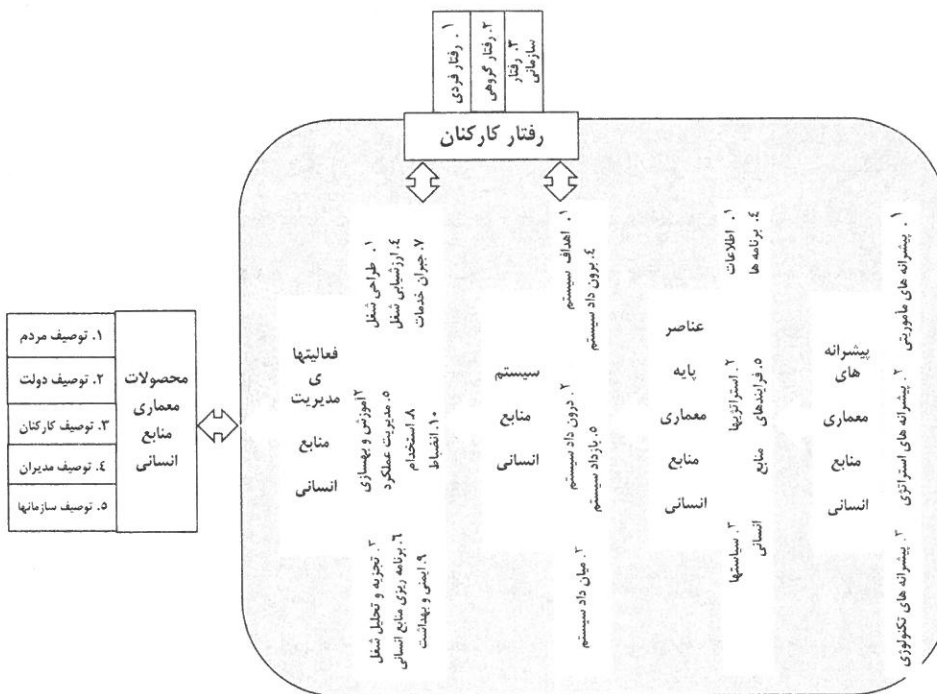 ۱. رفتار فردی
۲. رفتار گروهی
۳. رفتار
سازمانی
رفتار کارکنان
۱. توصیف مردم
۲. توصیف دولت
۳. توصیف کارکنان
۴. توصیف مدیران
۵. توصیف سازمانها
محصولات
معماری
منابع
انسانی
فعالیتها
ی
مدیریت
منابع
انسانی
۱. طراحی شغل
۴. ارزشیابی شغل
۷. جبران خدمات
۲آموزش و بهسازی
۵. مدیریت عملکرد
۸. استخدام
۱۰. انضباط
۳. تجزیه و تحلیل شغل
۶. برنامه ریزی منابع انسانی
۹. ایمنی و بهداشت
سیستم
منابع
انسانی
۱. اهداف سیستم
۴. برون داد سیستم
۲. درون داد سیستم
۵. بازداد سیستم
۳. میان داد سیستم
عناصر
پایه
معماری
منابع
انسانی
۱. اطلاعات
۴. برنامه ها
۲. استراتژیها
۵. فرایندهای منابع انسانی
۳. سیاستها
پیشرانه
های
معماری
منابع
انسانی
۱. پیشرانه های مأموریتی
۲. پیشرانه های استراتژی
۳. پیشرانه های تکنولوژی